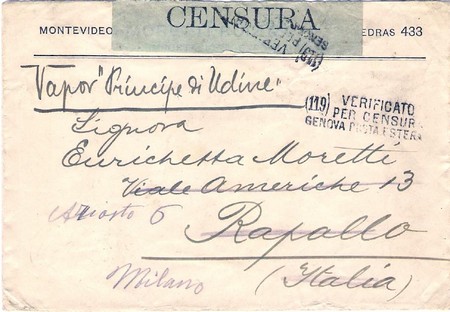 CENSURA
MONTEVIDEO
EDRAS 433
Vapor "Principe di Udine"
(119) VERIFICATO
PER CENSURA
GENOVA POSTA ESTERA
Signora
Enrichetta Moretti
Viale Americhe 13
Ariosto 6
Rapallo
Milano
(Italia)